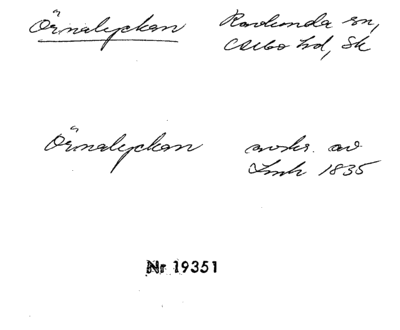 Örnalyckan Ravlunda sn,
Albo hd, Sk
Örnalyckan avskr. av
Lmh 1835
Nr 19351